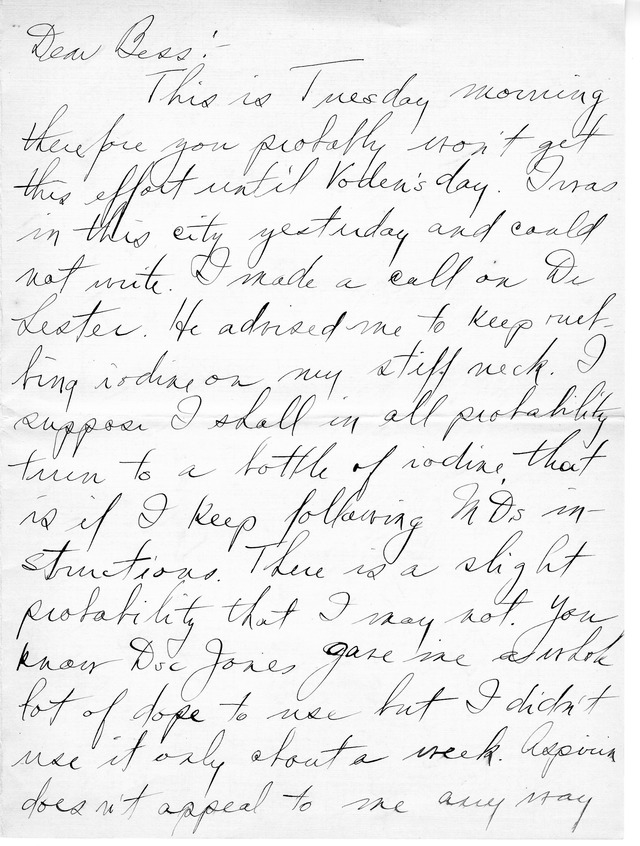 Dear Bess:-
This is Tuesday morning
therefore you probably won't get
this effort until Voden'sday. I was
in this city yesterday and could
not write. I made a call on Dr
Lester. He advised me to keep rub-
bing iodine on my stiff neck. I
suppose I shall in all probability
turn to a bottle of iodine that
is if I keep following MDs in-
structions. There is a slight
probability that I may not. You
know Doc Jones gave me a whole
lot of dope to use but I didn't
use it only about a week. Aspirin
doesn't appeal to me any way